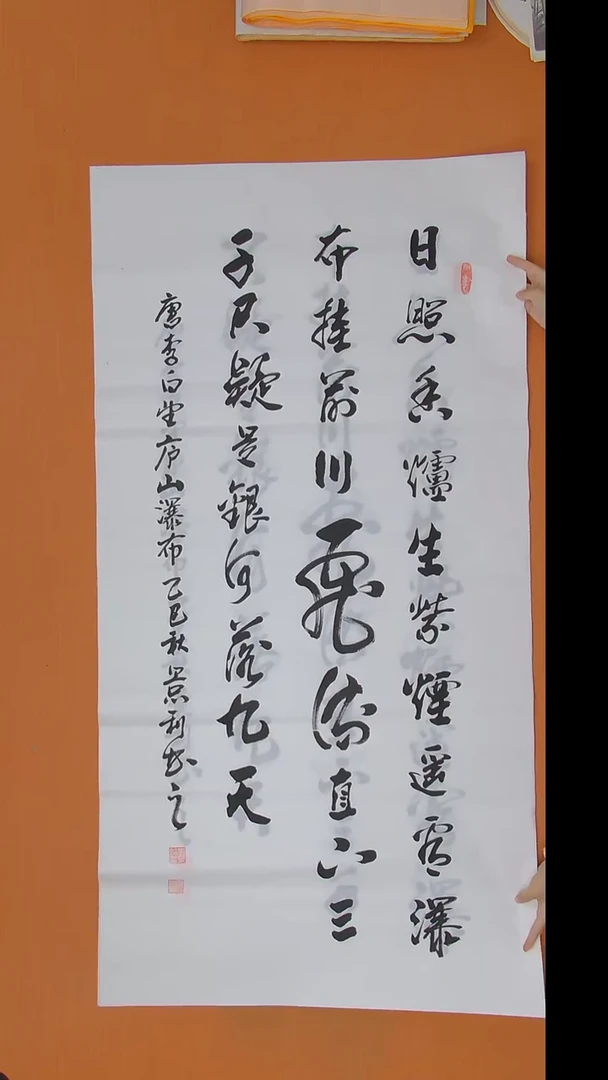 日照香爐生紫煙遥看瀑
布挂前川飛流直下三
千尺疑是銀河落九天
唐李白望庐山瀑布乙巳秋景利书之